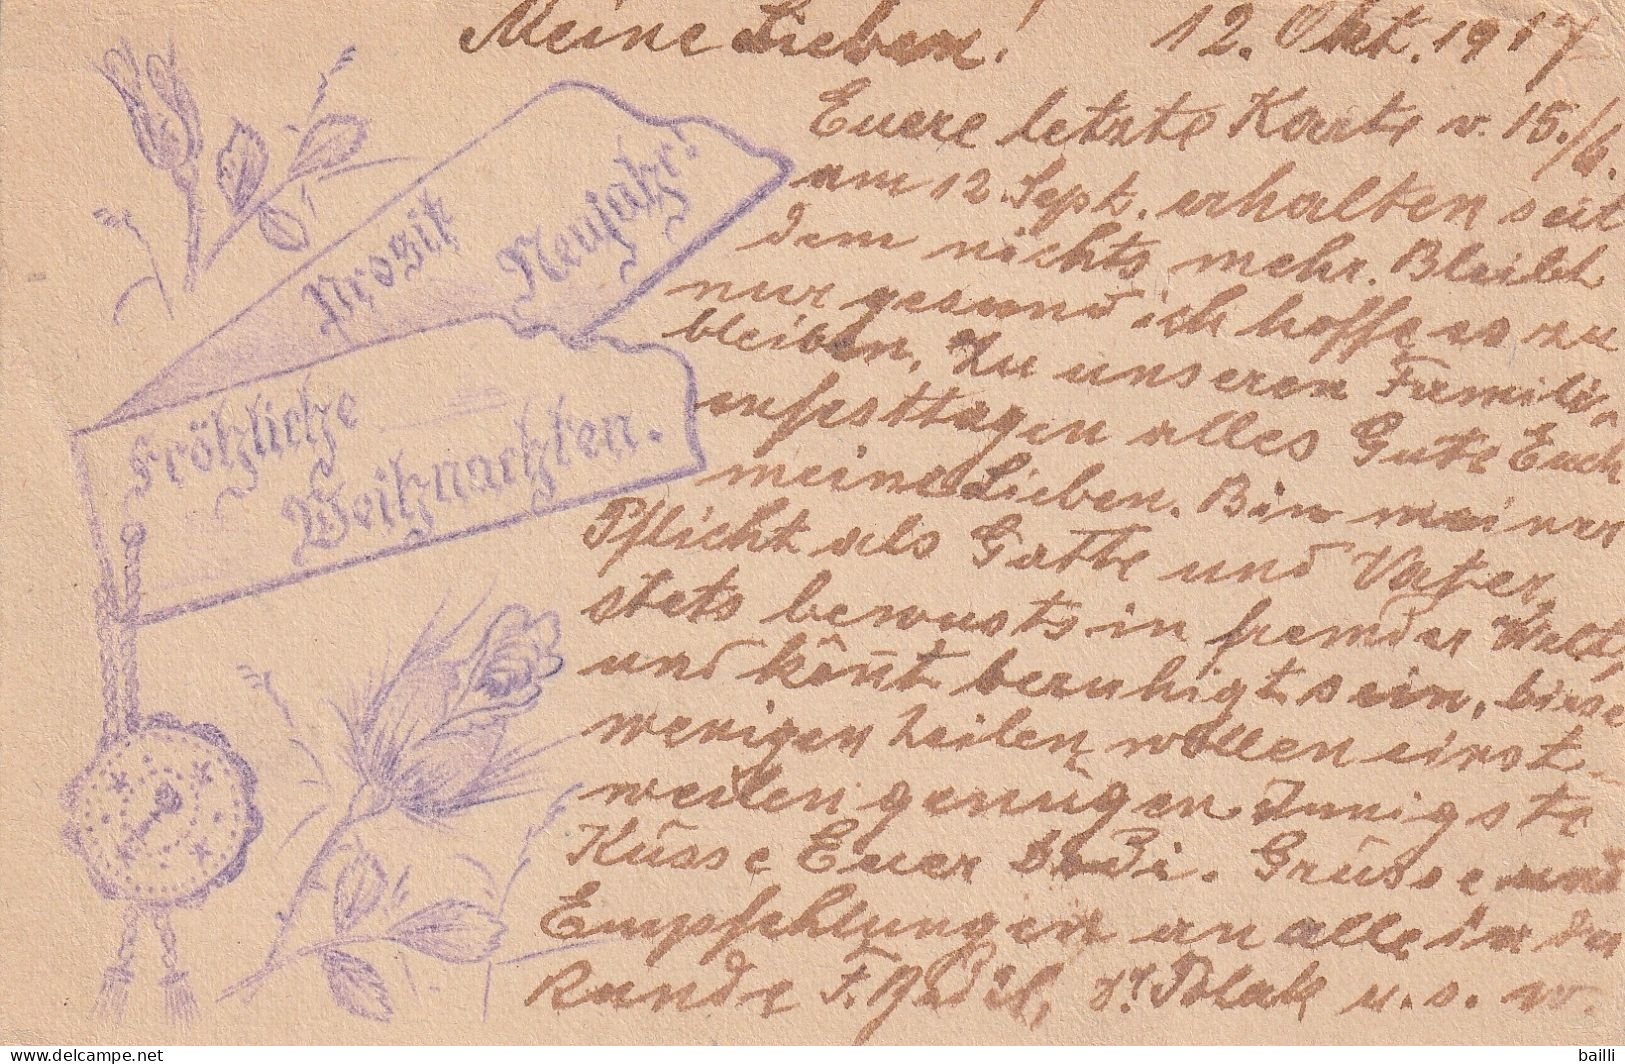 Meine Lieben! 12. Okt. 1917
Euere letzte Karte v. 15./6.
am 12 Sept. erhalten seit
dem nichts mehr. Bleibt
nur gesund ich hoffe es zu
bleiben. Zu unseren Famili-
enfesttagen alles Gute Euch
meine Lieben. Bin meiner
Pflicht als Gatte und Vater
stets bewusts in fremder Welt,
und könnt beruhigt sein, diese
wenigen Zeilen wollen einst
weilen genügen. Innigste
Küsse Euer Grüsse und
Empfehlungen an alle in der
Runde F. Dr. Polak u. s. w.
Prosit
Neujahr!
Fröhliche
Weihnachten.
delcampe.net
bailli